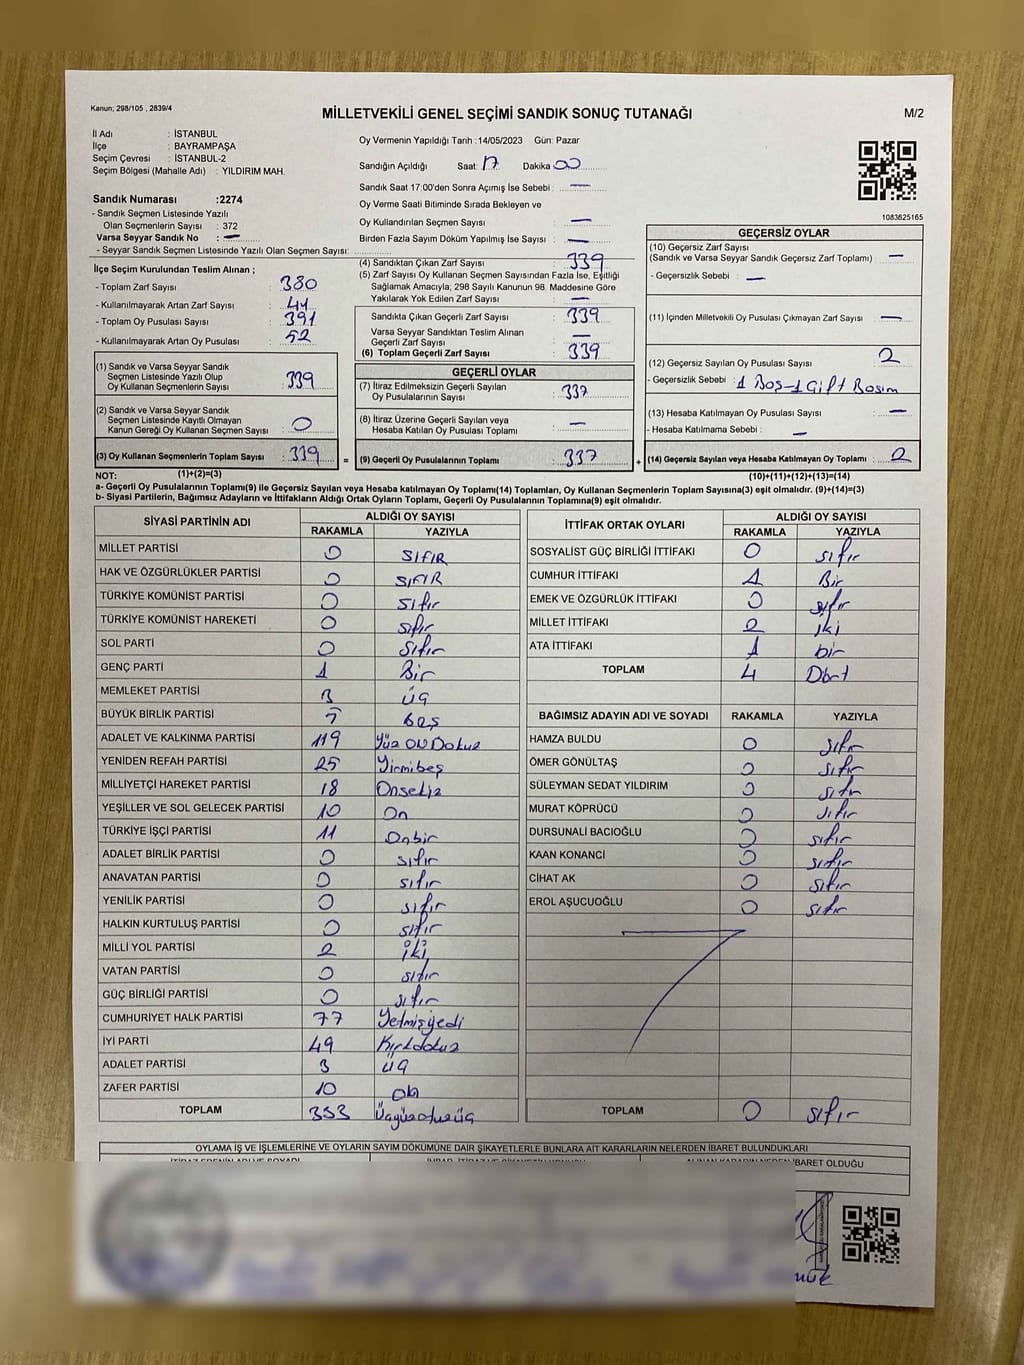 Kanun; 298/105 , 2839/4
MİLLETVEKİLİ GENEL SEÇİMİ SANDIK SONUÇ TUTANAĞI
M/2
İl Adı : İSTANBUL
İlçe : BAYRAMPAŞA
Seçim Çevresi : İSTANBUL-2
Seçim Bölgesi (Mahalle Adı) : YILDIRIM MAH.
Sandık Numarası :2274
- Sandık Seçmen Listesinde Yazılı
Olan Seçmenlerin Sayısı : 372
Varsa Seyyar Sandık No : —
- Seyyar Sandık Seçmen Listesinde Yazılı Olan Seçmen Sayısı:
İlçe Seçim Kurulundan Teslim Alınan ;
- Toplam Zarf Sayısı : 380
- Kullanılmayarak Artan Zarf Sayısı : 41
- Toplam Oy Pusulası Sayısı : 391
- Kullanılmayarak Artan Oy Pusulası : 52
(1) Sandık ve Varsa Seyyar Sandık
Seçmen Listesinde Yazılı Olup
Oy Kullanan Seçmenlerin Sayısı : 339
(2) Sandık ve Varsa Seyyar Sandık
Seçmen Listesinde Kayıtlı Olmayan
Kanun Gereği Oy Kullanan Seçmen Sayısı : 0
(3) Oy Kullanan Seçmenlerin Toplam Sayısı : 339 =
Oy Vermenin Yapıldığı Tarih :14/05/2023 Gün: Pazar
Sandığın Açıldığı Saat: 17 Dakika 00
Sandık Saat 17:00'den Sonra Açımış İse Sebebi : —
Oy Verme Saati Bitiminde Sırada Bekleyen ve
Oy Kullandırılan Seçmen Sayısı : —
Birden Fazla Sayım Döküm Yapılmış İse Sayısı : —
(4) Sandıktan Çıkan Zarf Sayısı : 339
(5) Zarf Sayısı Oy Kullanan Seçmen Sayısından Fazla İse, Eşitliği
Sağlamak Amacıyla; 298 Sayılı Kanunun 98. Maddesine Göre
Yakılarak Yok Edilen Zarf Sayısı : —
Sandıkta Çıkan Geçerli Zarf Sayısı : 339
Varsa Seyyar Sandıktan Teslim Alınan
Geçerli Zarf Sayısı : —
(6) Toplam Geçerli Zarf Sayısı : 339
GEÇERLİ OYLAR
(7) İtiraz Edilmeksizin Geçerli Sayılan
Oy Pusulalarının Sayısı : 337
(8) İtiraz Üzerine Geçerli Sayılan veya
Hesaba Katılan Oy Pusulası Toplamı : —
(9) Geçerli Oy Pusulalarının Toplamı : 337 +
1083625165
GEÇERSİZ OYLAR
(10) Geçersiz Zarf Sayısı
(Sandık ve Varsa Seyyar Sandık Geçersiz Zarf Toplamı) : —
- Geçersizlik Sebebi : —
(11) İçinden Milletvekili Oy Pusulası Çıkmayan Zarf Sayısı : —
(12) Geçersiz Sayılan Oy Pusulası Sayısı : 2
- Geçersizlik Sebebi : 1 Boş-1 Çift Basım
(13) Hesaba Katılmayan Oy Pusulası Sayısı : —
- Hesaba Katılmama Sebebi : —
(14) Geçersiz Sayılan veya Hesaba Katılmayan Oy Toplamı : 2
NOT: (1)+(2)=(3) (10)+(11)+(12)+(13)=(14)
a- Geçerli Oy Pusulalarının Toplamı(9) ile Geçersiz Sayılan veya Hesaba katılmayan Oy Toplamı(14) Toplamları, Oy Kullanan Seçmenlerin Toplam Sayısına(3) eşit olmalıdır. (9)+(14)=(3)
b- Siyasi Partilerin, Bağımsız Adayların ve İttifakların Aldığı Ortak Oyların Toplamı, Geçerli Oy Pusulalarının Toplamına(9) eşit olmalıdır.
SİYASİ PARTİNİN ADI ALDIĞI OY SAYISI
RAKAMLA YAZIYLA
MİLLET PARTİSİ 0 SIFIR
HAK VE ÖZGÜRLÜKLER PARTİSİ 0 SIFIR
TÜRKİYE KOMÜNİST PARTİSİ 0 sıfır
TÜRKİYE KOMÜNİST HAREKETİ 0 sıfır
SOL PARTİ 0 sıfır
GENÇ PARTİ 1 Bir
MEMLEKET PARTİSİ 3 üç
BÜYÜK BİRLİK PARTİSİ 5 beş
ADALET VE KALKINMA PARTİSİ 119 Yüz ON Dokuz
YENİDEN REFAH PARTİSİ 25 Yirmibeş
MİLLİYETÇİ HAREKET PARTİSİ 18 Onsekiz
YEŞİLLER VE SOL GELECEK PARTİSİ 10 On
TÜRKİYE İŞÇİ PARTİSİ 11 Onbir
ADALET BİRLİK PARTİSİ 0 sıfır
ANAVATAN PARTİSİ 0 sıfır
YENİLİK PARTİSİ 0 sıfır
HALKIN KURTULUŞ PARTİSİ 0 sıfır
MİLLİ YOL PARTİSİ 2 iki
VATAN PARTİSİ 0 sıfır
GÜÇ BİRLİĞİ PARTİSİ 0 sıfır
CUMHURİYET HALK PARTİSİ 77 Yetmişyedi
İYİ PARTİ 49 Kırkdokuz
ADALET PARTİSİ 3 üç
ZAFER PARTİSİ 10 on
TOPLAM 333 Üçyüzotuzüç
İTTİFAK ORTAK OYLARI ALDIĞI OY SAYISI
RAKAMLA YAZIYLA
SOSYALİST GÜÇ BİRLİĞİ İTTİFAKI 0 sıfır
CUMHUR İTTİFAKI 1 Bir
EMEK VE ÖZGÜRLÜK İTTİFAKI 0 sıfır
MİLLET İTTİFAKI 2 iki
ATA İTTİFAKI 1 bir
TOPLAM 4 Dört
BAĞIMSIZ ADAYIN ADI VE SOYADI RAKAMLA YAZIYLA
HAMZA BULDU 0 sıfır
ÖMER GÖNÜLTAŞ 0 sıfır
SÜLEYMAN SEDAT YILDIRIM 0 sıfır
MURAT KÖPRÜCÜ 0 sıfır
DURSUNALİ BACIOĞLU 0 sıfır
KAAN KONANCİ 0 sıfır
CİHAT AK 0 sıfır
EROL AŞUCUOĞLU 0 sıfır
TOPLAM 0 sıfır
OYLAMA İŞ VE İŞLEMLERİNE VE OYLARIN SAYIM DÖKÜMÜNE DAİR ŞİKAYETLERLE BUNLARA AİT KARARLARIN NELERDEN İBARET BULUNDUKLARI
İTİRAZ EDENİN ADI VE SOYADI ALINAN KARARIN NEDEN İBARET OLDUĞU